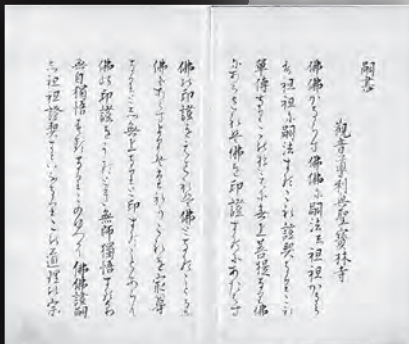 嗣書
觀音導利興聖寶林寺
佛佛かならす佛佛に嗣法し祖祖かなら
す祖祖に嗣法するこれ證契なりこれ
單傳なりこのゆへに無上菩提なり佛
にあらされは佛を印證するにあたはす
佛の印證をえされは佛となることなし
佛にあらすよりはたれかこれを最尊
なりとし無上なりと印することあらん
佛の印證をうるとき無師獨悟するなり
無自獨悟するなりこのゆへに佛佛證嗣
し祖祖證契すといふなりこの道理の宗